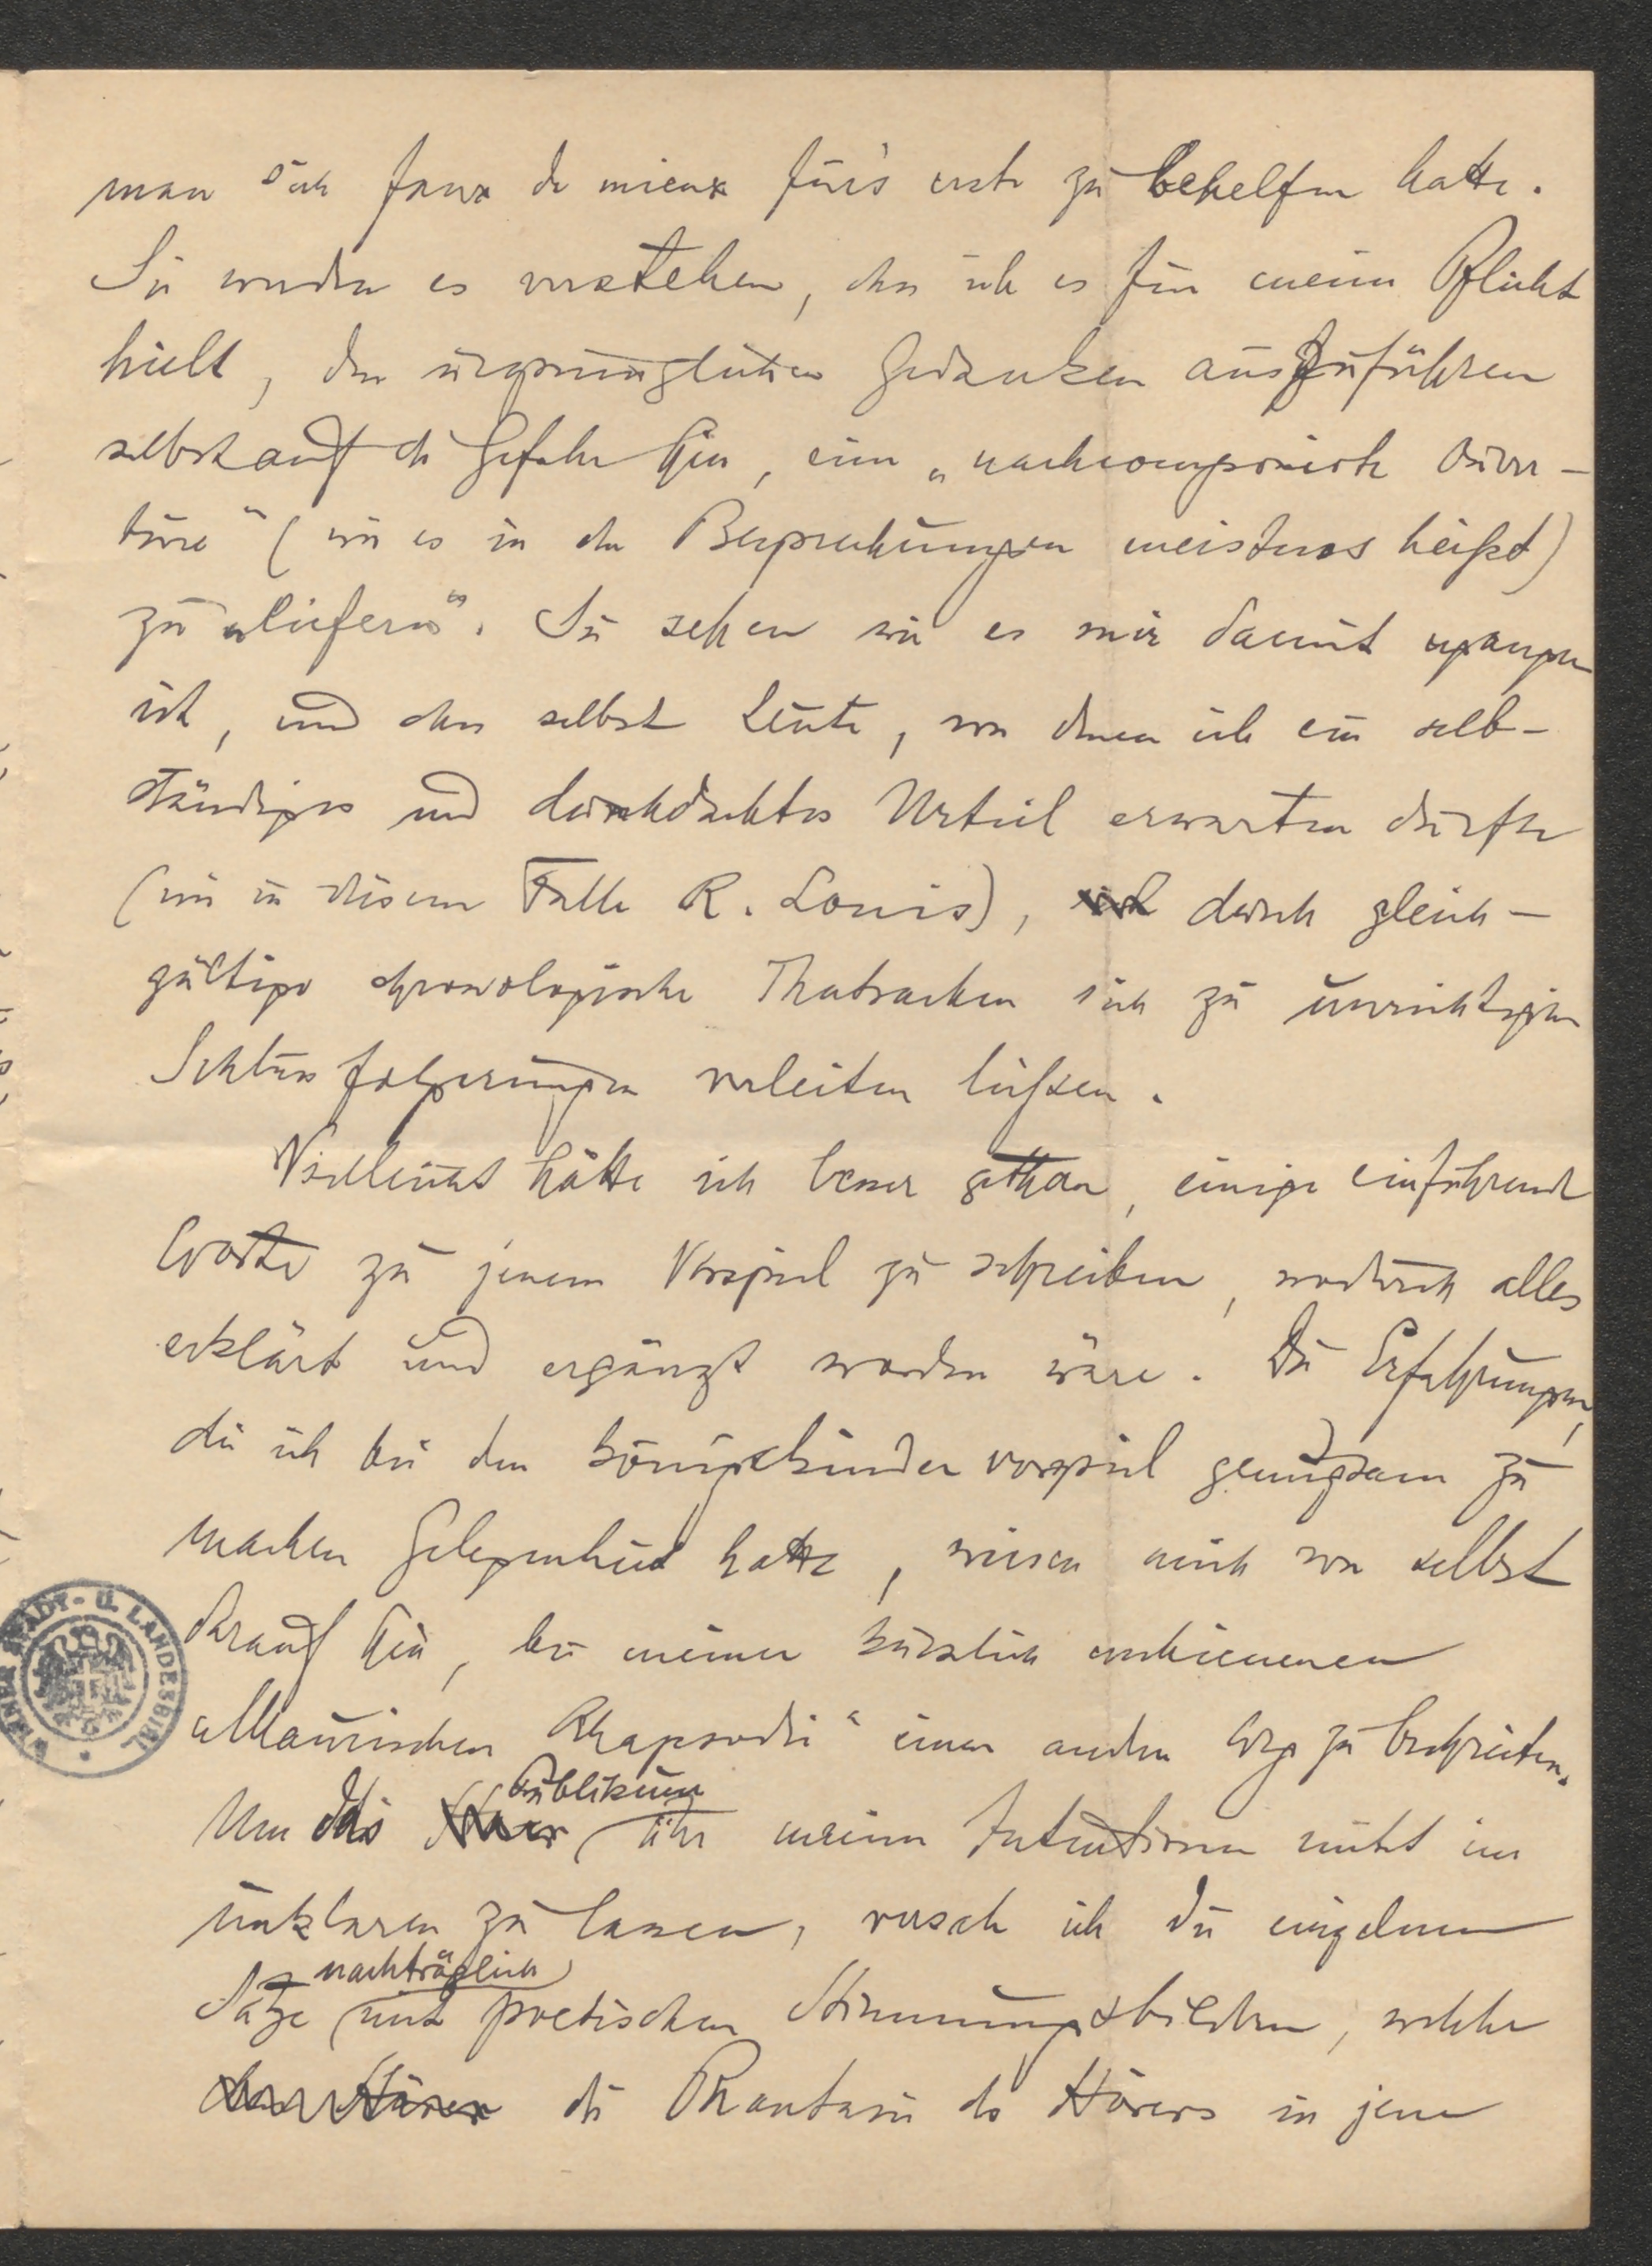 man sich faux de mieux für's erste zu behelfen hatte.
Sie werden es verstehen, dass ich es für meine Pflicht
hielt, den ursprünglichen Gedanken auszuführen
selbst auf die Gefahr hin, eine „nachcomponirte Ouver-
türe" (wie es in den Besprechungen meistens heißt)
zu „liefern". Sie sehen wie es mir damit ergangen
ist, und dass selbst Leute, von denen ich ein selb-
ständiges und durchdachtes Urteil erwarten durfte
(wie in diesem Falle R. Louis), durch gleich-
gültige chronologische Thatsachen sich zu unrichtigen
Schlussfolgerungen verleiten ließen.
Vielleicht hätte ich besser gethan, einige einführende
Worte zu jenem Vorspiel zu schreiben, wodurch alles
erklärt und ergänzt worden wäre. Die Erfahrungen,
die ich bei dem Königskindervorspiel genugsam zu
machen Gelegenheit hatte, wiesen mich von selbst
darauf hin, bei meiner kürzlich erschienenen
„Maurischen Rhapsodie" einen andern Weg zu beschreiten.
Um das Publikum über meine Intentionen nicht im
unklaren zu lassen, versah ich die einzelnen
Sätze nachträglich mit poetischen Stimmungsbildern, welche
den Hörer die Phantasie des Hörers in jene
WIENER STADT- U. LANDESBIBL.